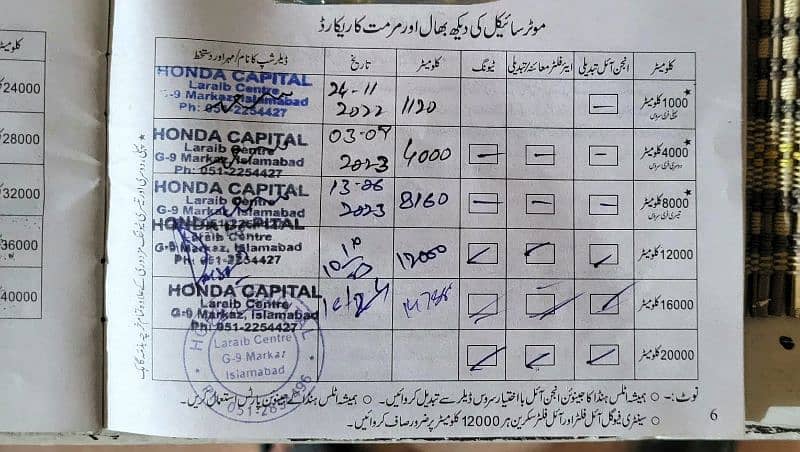 موٹر سائیکل کی دیکھ بھال اور مرمت کا ریکارڈ
کلومیٹر انجن آئل تبدیلی ایئر فلٹر معائنہ/تبدیلی ٹیوننگ کلومیٹر تاریخ ڈیلر شپ کا نام/مہر اور دستخط
1000 کلومیٹر
پہلی فری سروس
1120
24-11
2022
HONDA CAPITAL
Laraib Centre
G-9 Markaz, Islamabad
Ph: 051-2254427
4000 کلومیٹر
دوسری فری سروس
4000
2023
HONDA CAPITAL
Laraib Centre
G-9 Markaz, Islamabad
Ph: 051-2254427
8000 کلومیٹر
تیسری فری سروس
8160
13-06
2023
HONDA CAPITAL
Laraib Centre
G-9 Markaz, Islamabad
12000 کلومیٹر
12000
HONDA CAPITAL
Laraib Centre
G-9 Markaz, Islamabad
Ph: 051-2254427
16000 کلومیٹر
HONDA CAPITAL
Laraib Centre
G-9 Markaz, Islamabad
Ph: 051-2254427
20000 کلومیٹر
Laraib Centre
G-9 Markaz
Islamabad
نوٹ:- ○ ہمیشہ اٹلس ہنڈا کا جینوئن انجن آئل با اختیار سروس ڈیلر سے تبدیل کروائیں۔ ○ ہمیشہ اٹلس ہنڈا کے جینوئن پارٹس استعمال کریں۔
○ سینٹری فیوگل آئل فلٹر اور آئل فلٹر سکرین ہر 12000 کلومیٹر پر ضرور صاف کروائیں۔
6
24000
28000
32000
36000
40000